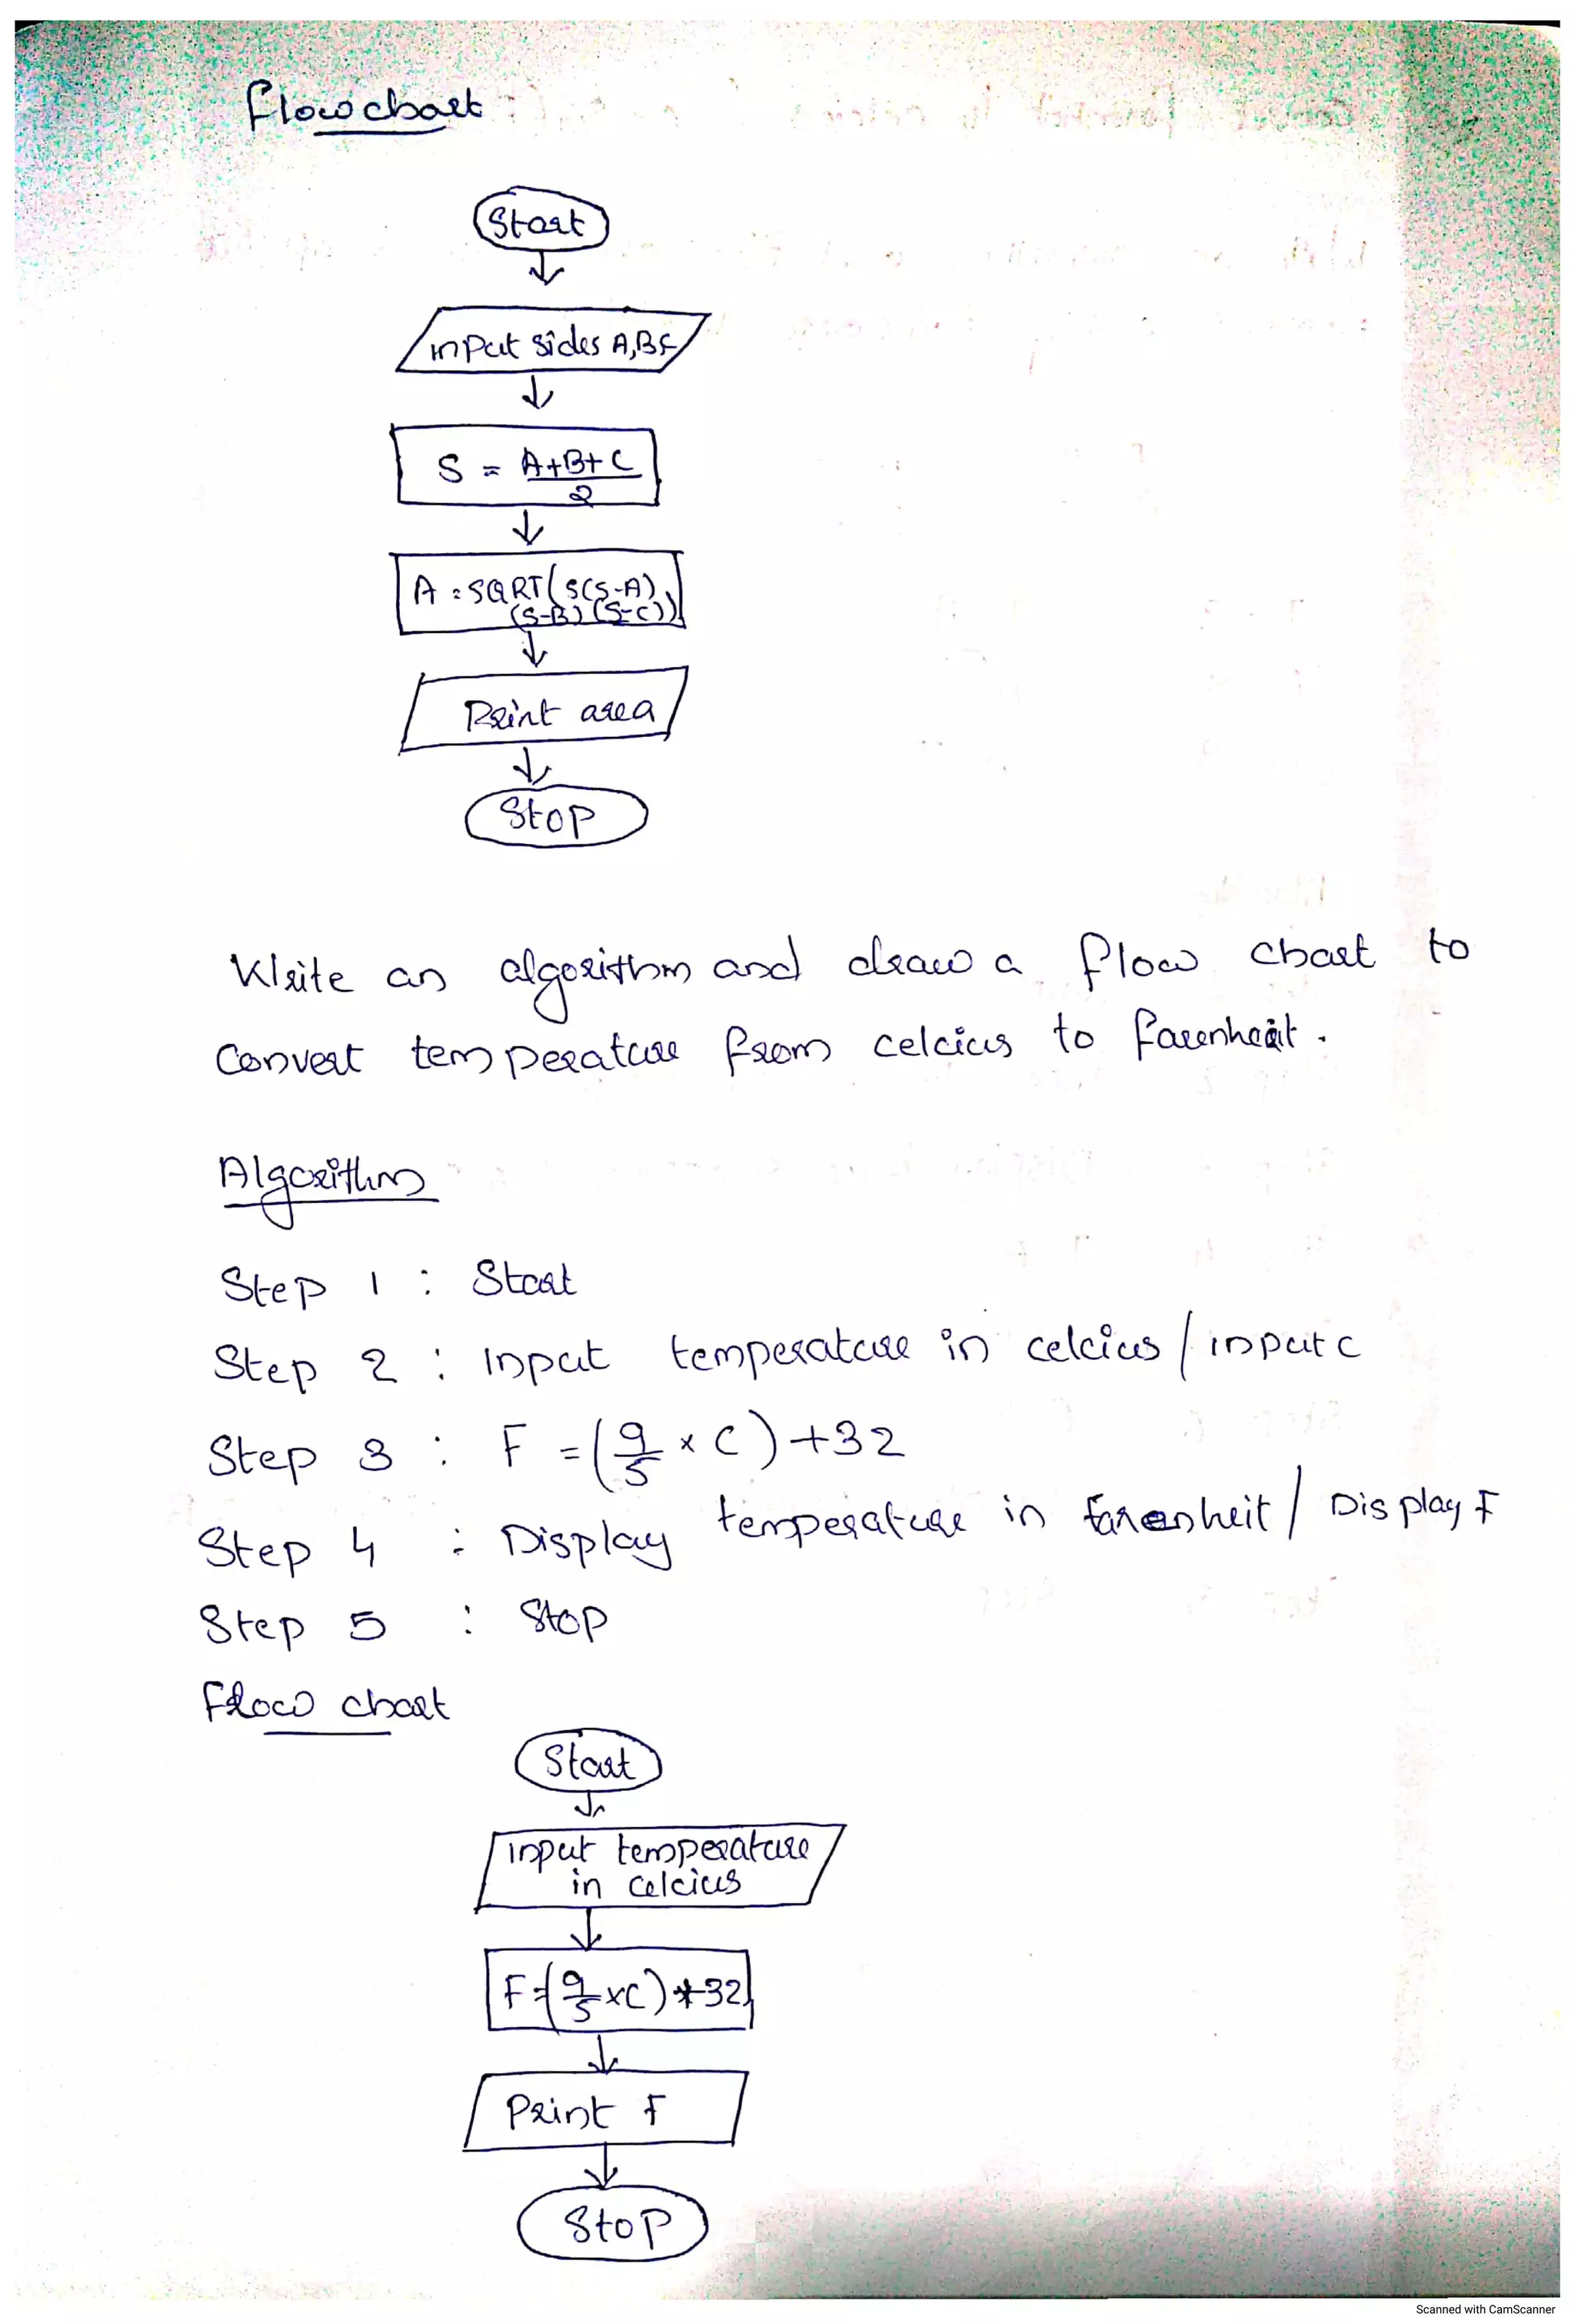 Flowchart
Start
input sides A,B,C
S = A+B+C
2
A = SQRT(S(S-A)
(S-B)(S-C))
Print area
Stop
Write an algorithm and draw a flow chart to
Convert temperature from celcius to farenheit.
Algorithm
Step 1 : Start
Step 2 : Input temperature in celcius / input c
Step 3 : F = (9/5 × C) +32
Step 4 : Display temperature in farenheit / Display F
Step 5 : Stop
Flow chart
Start
input temperature
in celcius
F=(9/5 ×C)+32
Print F
Stop
Scanned with CamScanner